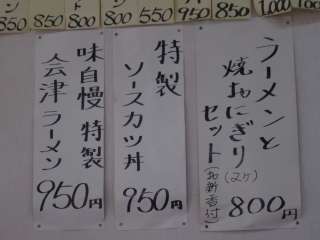 850
850
800
800
550
950
850
1,000
ラーメンと
焼おにぎり
セット(2ケ)
(お新香付)
800円
特製
ソースカツ丼
950円
味自慢 特製
会津ラーメン
950円